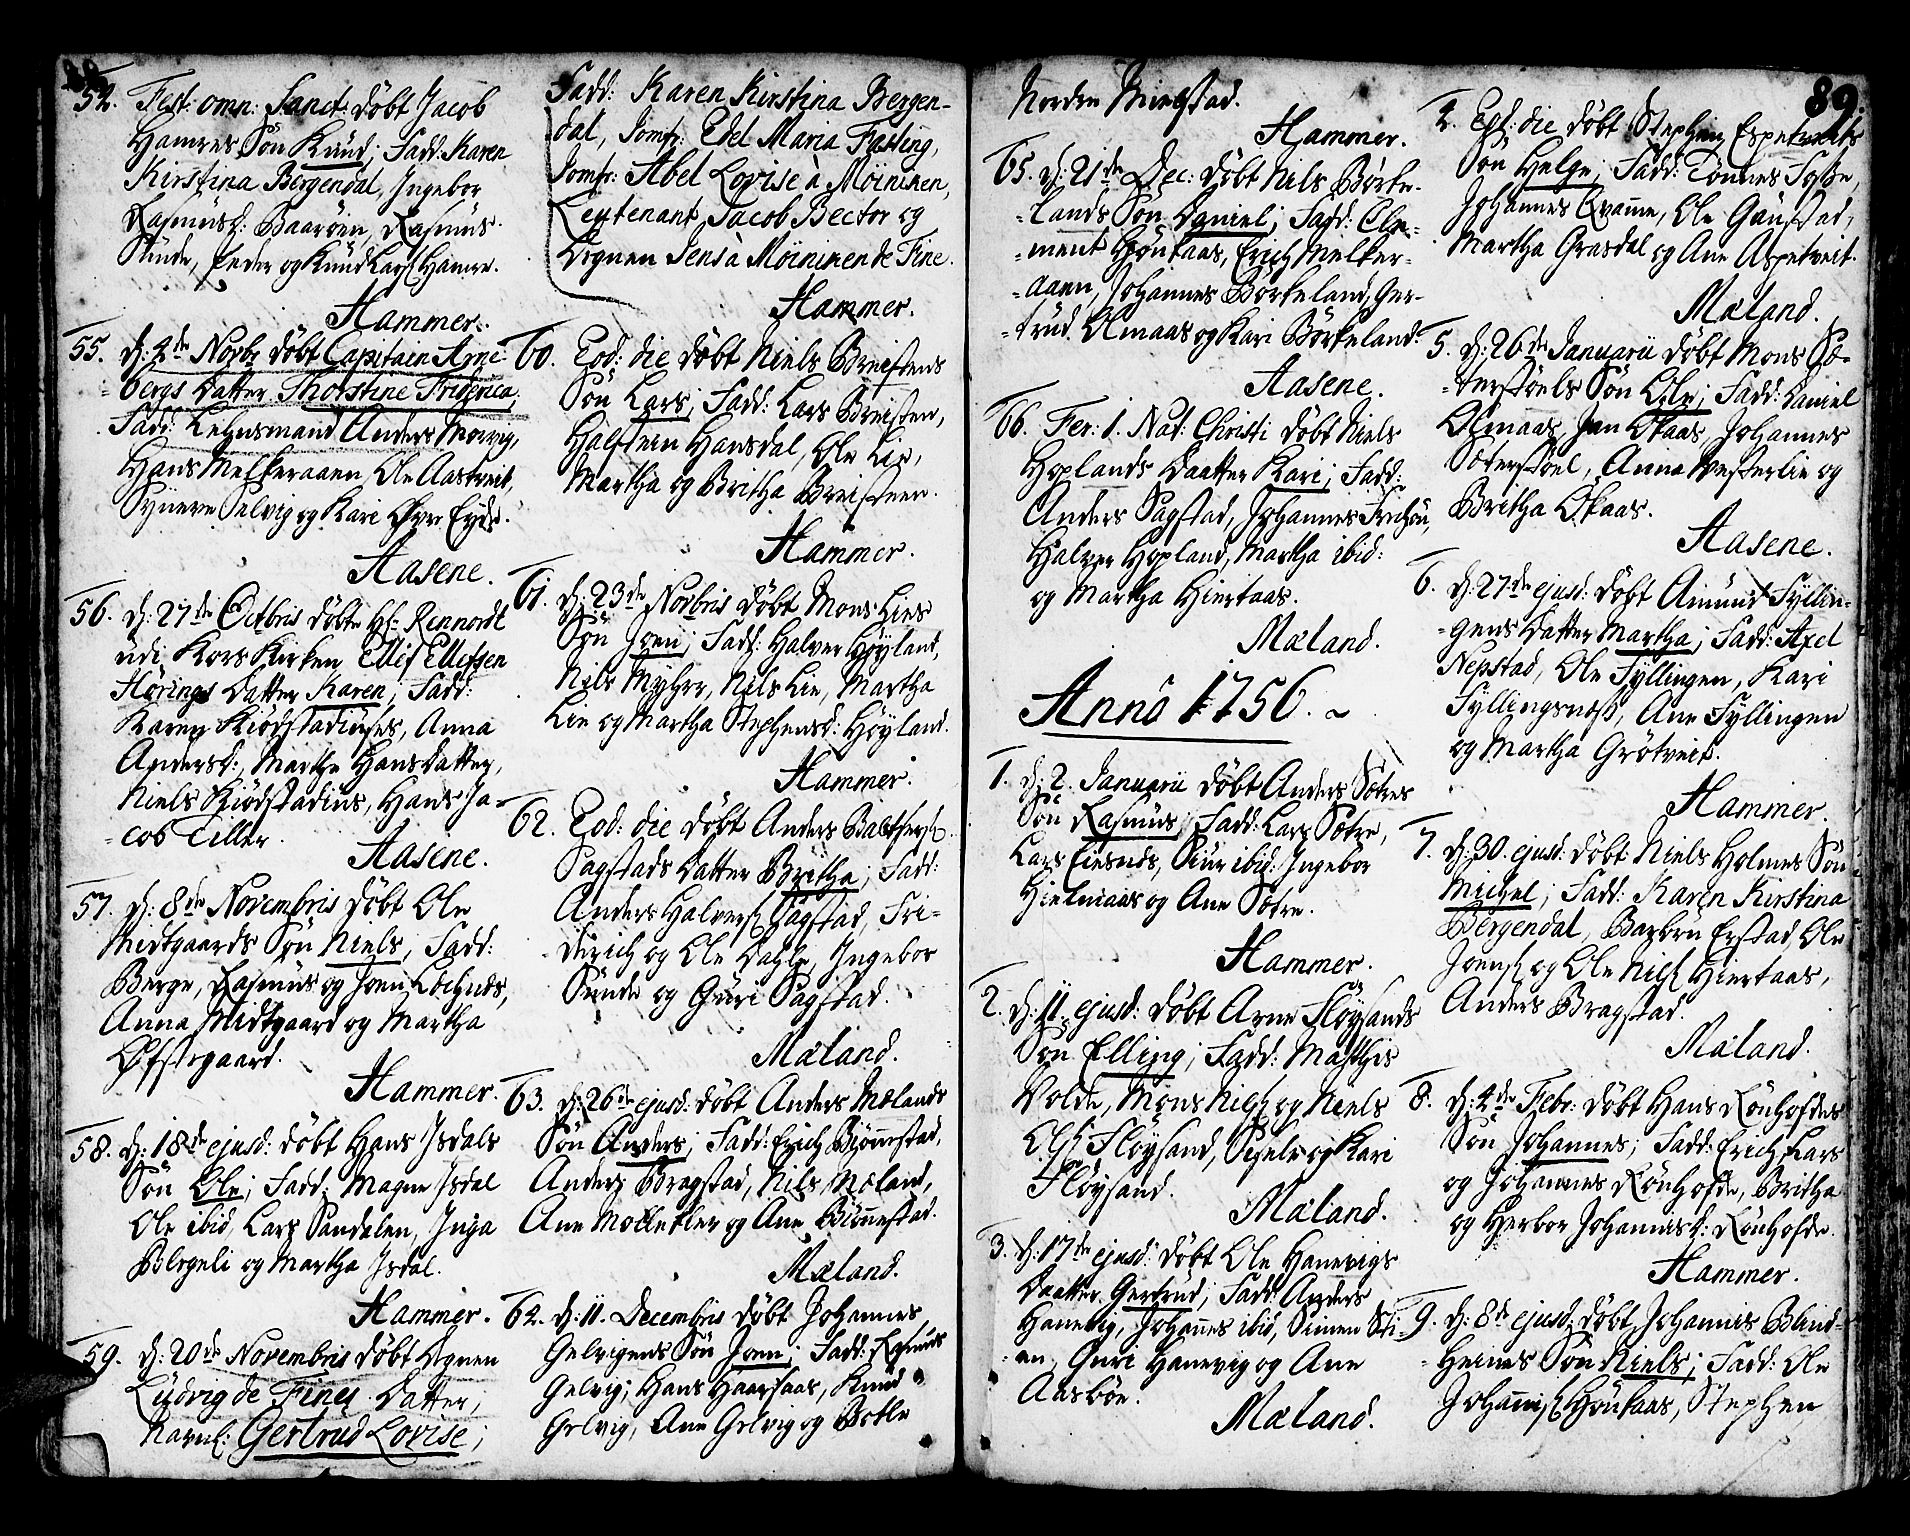 54. Fest: omn: Sanct: døbt Jacob
Hamres Søn Knud; Fadd: Karen
Kirstina Bergendal, Ingebor
Rasmusd: Baarøen, Rasmus
Stunde, Peder og Knud Lars: Hamre.
Hammer.
55. d: 4de Novbr døbt Capitain Arne-
bergs Datter Thorstine Friderica,
Fadd: Lehnsmand Anders Morvig,
Hans Melkeraaen, Ole Aastveit,
Synneve Selvig og Kari Øvre Eyde.
Aasene.
56. d: 27de Octbris døbte Hr: Rennordt
udi Kors Kirken Ellef Ellefsen
Hørings Datter Karen; Fadd:
Karen Kiødstadiuses, Anna
Andersd:, Marthe Hansdatter,
Niels Kiødstadius, Hans Ja-
cob Tiller.
Aasene.
57. d: 8de Novembris døbt Ole
Midtgaards Søn Niels; Fadd:
Berge, Rasmus og Joen Lochnds,
Anna Midtgaard og Martha
Øfstegaard.
Hammer.
58. d: 18de ejusd: døbt Hans Isdals
Søn Ole; Fadd: Magne Isdal
Ole ibid, Lars Sandalen, Inga
Blegeli og Martha Isdal.
Hammer.
59. d: 20de Novembris døbt Degnen
Ludvig de Fines Datter;
Navnl: Gertrud Lovise;
Fadd: Karen Kirstina Bergen-
dal, Jomfr: Edel Maria Fasting,
Jomfr: Abel Lovise à Møinichen,
Leutenant Jacob Bector og
Degnen Jens à Møinichen de Fine.
Hammer.
60. Eod: die døbt Niels Breistens
Søn Lars; Fadd: Lars Breisten,
Halsteen Hansdal, Ole Lie,
Martha og Britha Breisteen.
Hammer.
61. d: 23de Novbris døbt Mons Lies
Søn Joen; Fadd: Halver Høyland,
Nils Myhre, Nils Lie, Martha
Lie og Martha Stephensd: Høyland.
Hammer.
62. Eod: die døbt Anders Balthers:
Sagstads Datter Britha; Fadd:
Anders Halvers: Sagstad, Fri-
derich og Ole Dahle, Ingebor
Sunde og Guri Sagstad.
Mæland.
63. d: 26de ejusd: døbt Anders Mælands
Søn Anders; Fadd: Erich Biønnestad,
Anders Bragstad, Nils Mæland,
Ane Molletler og Ane Biønnestad.
Mæland.
64. d: 11. Decembris døbt Johannes
Gelvigens Søn Joen; Fadd: Rasmus
Gelvig, Hans Haarsaas, Knud
Gelvig, Ane Gelvig og Botle
89.
Norden Mielstad.
Hammer.
65. d: 21de Dec: døbt Nils Børke-
lands Søn Daniel; Fadd: Cle-
ment Houkaas, Erich Melker-
aaen, Johannes Børkeland, Ger-
trud Olmaas og Kari Børkeland.
Aasene.
66. Fer: 1. Nat: Christi døbt Niels
Hoplands Daatter Kari; Fadd:
Anders Sagstad, Johannes,
Halver Hopland, Martha ibid:
og Martha Hiertaas.
Mæland.
Anno 1756.
1. d: 2. Januarii døbt Anders Sætres
Søn Rasmus; Fadd: Lars Sætre,
Lars Eiesnds, Siur ibid: Ingebor
Hielmaas og Ane Sætre.
Hammer.
2. d: 11. ejusd: døbt Arne Fløysands
Søn Elling; Fadd: Mathis
Volde, Mons Niels: og Niels
Ols: Fløysand, Siselv og Kari
Fløysand.
Mæland.
3. d: 17de ejusd: døbt Ole Hanevigs
Daatter Gertrud; Fadd: Anders
Hanevig, Johannes ibid, Simen Sti-
en, Guri Hanevig og Ane
Aasbøe.
Mæland.
4. Eod: die døbt Stephen Espetveits
Søn Helge; Fadd: Tønnes Fosse,
Johannes Qvamme, Ole Gaustad,
Martha Grasdal og Ane Aspetveit.
Mæland.
5. d: 26de Januarii døbt Mons Sæ-
terstøels Søn Ole; Fadd: Daniel
Olmaas, Jan Okaas, Johannes
Sæterstøel, Anna Vesterlie og
Britha Okaas.
Aasene.
6. d: 27de ejusd: døbt Amund Fyllin-
gens Datter Martha; Fadd: Axel
Nepstad, Ole Fyllingen, Kari
Fyllingsnæss, Ane Fyllingen
og Martha Grøtveit.
Hammer.
7. d: 30. ejusd: døbt Niels Holmes Søn
Michel; Fadd: Karen Kirstina
Bergendal, Barbru Erstad, Ole
Joens: og Ole Niels: Hiertaas,
Anders Bragstad.
Mæland.
8. d: 4de Febr: døbt Hans Rønhofdes
Søn Johannes; Fadd: Erich, Lars
og Johannes Rønhofde, Britha
og Herbor Johannisd: Rønhofde.
Hammer.
9. d: 8de ejusd: døbt Johannis Blind-
heimes Søn Niels; Fadd: Ole
Johannis: Houkaas, Stephen